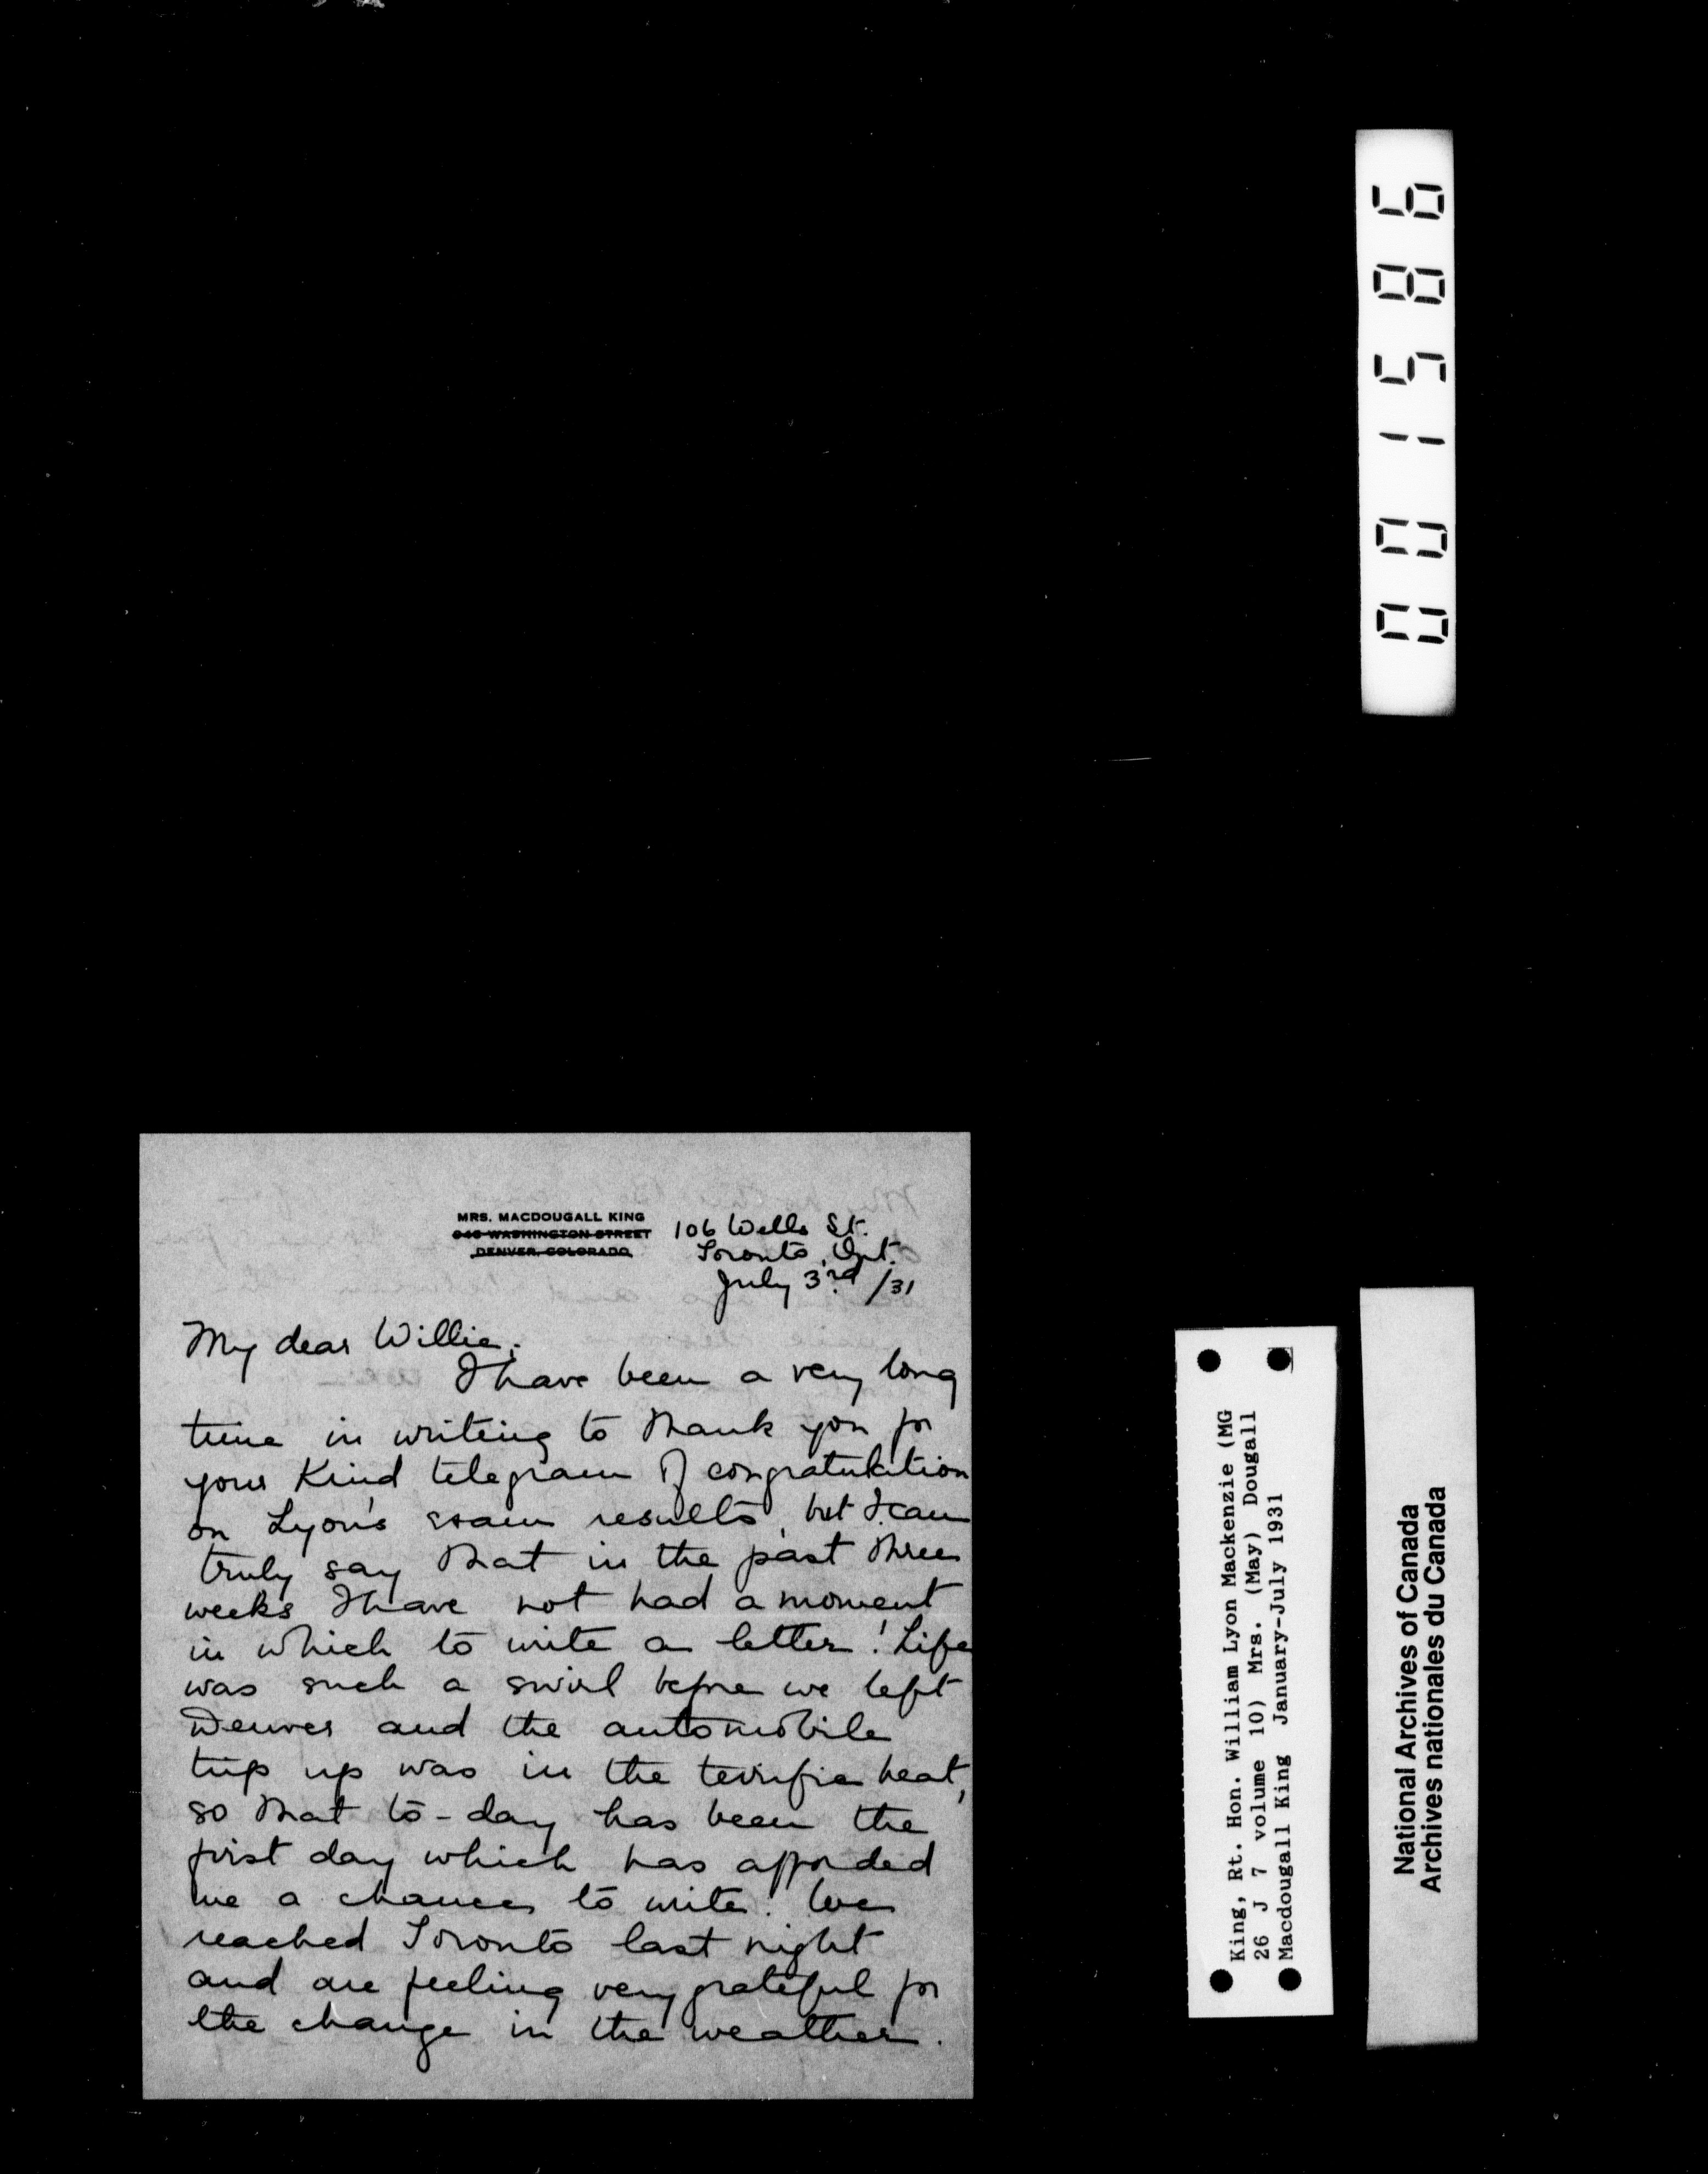 001586
MRS. MACDOUGALL KING
WASHINGTON STREET
DENVER, COLORADO
106 Wells St.
Toronto, Ont.
July 3rd /31
My dear Willie;
I have been a very long
time in writing to thank you for
your kind telegram of congratulation
on Lyon's exam results, but I can
truly say that in the past three
weeks I have not had a moment
in which to write a letter! Life
was such a swirl before we left
Denver and the automobile
trip up was in the terrific heat,
so that to-day has been the
first day which has afforded
me a chance to write. We
reached Toronto last night
and are feeling very grateful for
the change in the weather.
King, Rt. Hon. William Lyon Mackenzie (MG
26 J 7 volume 10) Mrs. (May) Dougall
Macdougall King January-July 1931
National Archives of Canada
Archives nationales du Canada